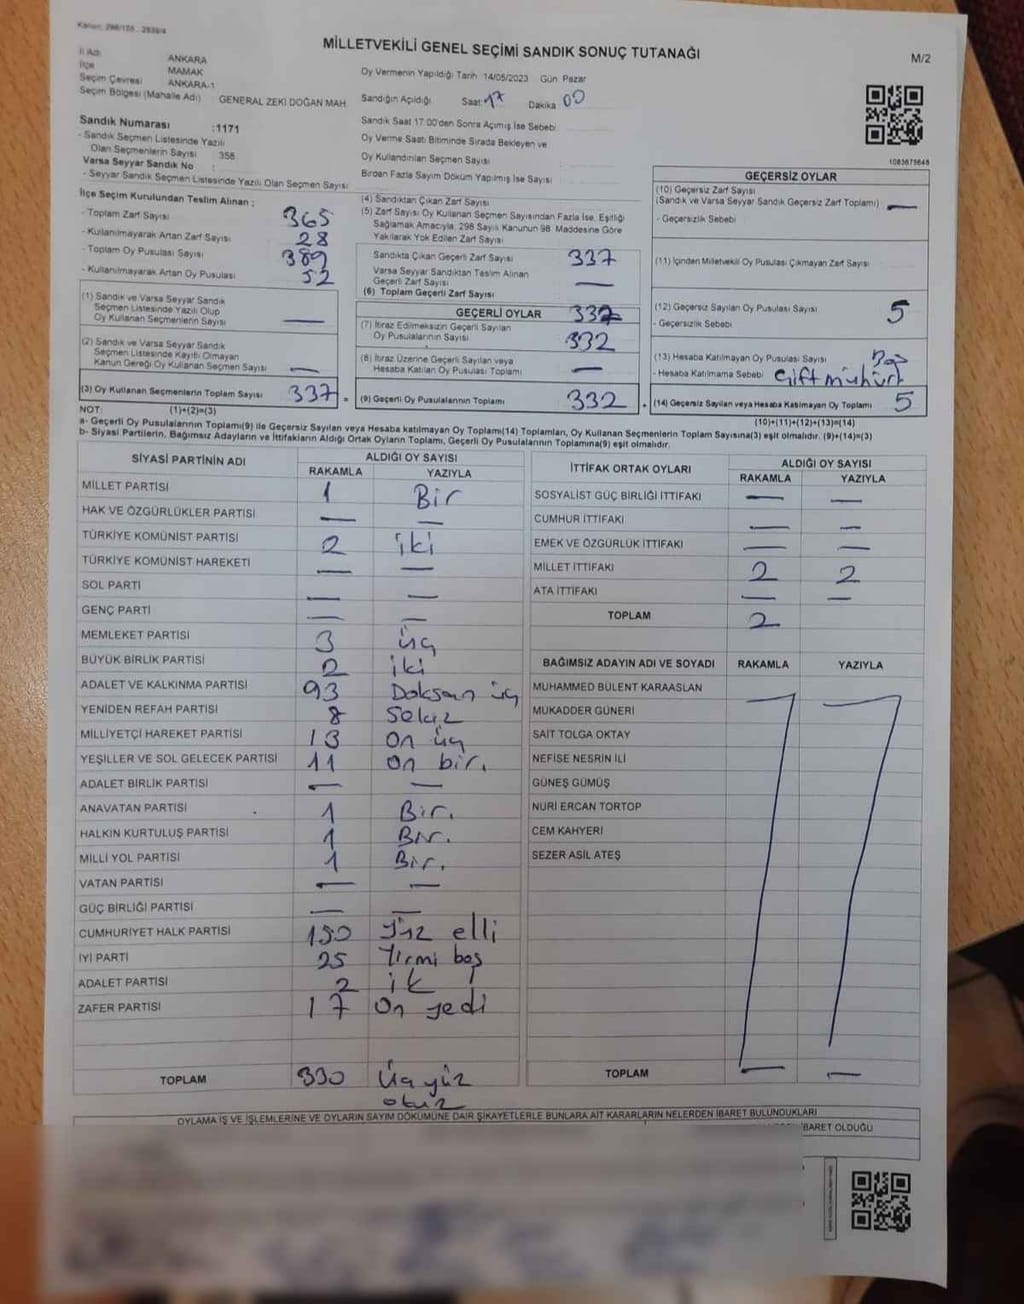 Kanun: 298/105 , 2839/4
MİLLETVEKİLİ GENEL SEÇİMİ SANDIK SONUÇ TUTANAĞI
M/2
İl Adı ANKARA
İlçe MAMAK
Seçim Çevresi ANKARA-1
Seçim Bölgesi (Mahalle Adı) : GENERAL ZEKİ DOĞAN MAH
Sandık Numarası :1171
- Sandık Seçmen Listesinde Yazılı
Olan Seçmenlerin Sayısı 356
Varsa Seyyar Sandık No :
- Seyyar Sandık Seçmen Listesinde Yazılı Olan Seçmen Sayısı
Oy Vermenin Yapıldığı Tarih 14/05/2023 Gün Pazar
Sandığın Açıldığı Saat 17 Dakika 00
Sandık Saat 17.00'den Sonra Açımış İse Sebebi
Oy Verme Saati Bitiminde Sırada Bekleyen ve
Oy Kullandırılan Seçmen Sayısı
Birden Fazla Sayım Döküm Yapılmış İse Sayısı
1083675648
İlçe Seçim Kurulundan Teslim Alınan ;
- Toplam Zarf Sayısı 365
- Kullanılmayarak Artan Zarf Sayısı 28
- Toplam Oy Pusulası Sayısı 389
- Kullanılmayarak Artan Oy Pusulası 52
(1) Sandık ve Varsa Seyyar Sandık
Seçmen Listesinde Yazılı Olup
Oy Kullanan Seçmenlerin Sayısı —
(2) Sandık ve Varsa Seyyar Sandık
Seçmen Listesinde Kayıtlı Olmayan
Kanun Gereği Oy Kullanan Seçmen Sayısı —
(3) Oy Kullanan Seçmenlerin Toplam Sayısı 337 =
(4) Sandıktan Çıkan Zarf Sayısı
(5) Zarf Sayısı Oy Kullanan Seçmen Sayısından Fazla İse, Eşitliği
Sağlamak Amacıyla, 298 Sayılı Kanunun 98. Maddesine Göre
Yakılarak Yok Edilen Zarf Sayısı
Sandıkta Çıkan Geçerli Zarf Sayısı 337
Varsa Seyyar Sandıktan Teslim Alınan
Geçerli Zarf Sayısı —
(6) Toplam Geçerli Zarf Sayısı
GEÇERLİ OYLAR 337
(7) İtiraz Edilmeksizin Geçerli Sayılan
Oy Pusulalarının Sayısı 332
(8) İtiraz Üzerine Geçerli Sayılan veya
Hesaba Katılan Oy Pusulası Toplamı —
(9) Geçerli Oy Pusulalarının Toplamı 332 +
GEÇERSİZ OYLAR
(10) Geçersiz Zarf Sayısı
(Sandık ve Varsa Seyyar Sandık Geçersiz Zarf Toplamı) —
- Geçersizlik Sebebi
(11) İçinden Milletvekili Oy Pusulası Çıkmayan Zarf Sayısı
(12) Geçersiz Sayılan Oy Pusulası Sayısı 5
- Geçersizlik Sebebi
(13) Hesaba Katılmayan Oy Pusulası Sayısı
- Hesaba Katılmama Sebebi Çift mühür
(14) Geçersiz Sayılan veya Hesaba Katılmayan Oy Toplamı 5
NOT: (1)+(2)=(3)
(10)+(11)+(12)+(13)=(14)
a- Geçerli Oy Pusulaların Toplamı(9) ile Geçersiz Sayılan veya Hesaba katılmayan Oy Toplamı(14) Toplamları, Oy Kullanan Seçmenlerin Toplam Sayısına(3) eşit olmalıdır. (9)+(14)=(3)
b- Siyasi Partilerin, Bağımsız Adayların ve İttifakların Aldığı Ortak Oyların Toplamı, Geçerli Oy Pusulalarının Toplamına(9) eşit olmalıdır.
SİYASİ PARTİNİN ADI ALDIĞI OY SAYISI
RAKAMLA YAZIYLA
MİLLET PARTİSİ 1 Bir
HAK VE ÖZGÜRLÜKLER PARTİSİ — —
TÜRKİYE KOMÜNİST PARTİSİ 2 iki
TÜRKİYE KOMÜNİST HAREKETİ — —
SOL PARTİ — —
GENÇ PARTİ — —
MEMLEKET PARTİSİ 3 üç
BÜYÜK BİRLİK PARTİSİ 2 iki
ADALET VE KALKINMA PARTİSİ 93 Doksan üç
YENİDEN REFAH PARTİSİ 8 Sekiz
MİLLİYETÇİ HAREKET PARTİSİ 13 On üç
YEŞİLLER VE SOL GELECEK PARTİSİ 11 On bir.
ADALET BİRLİK PARTİSİ — —
ANAVATAN PARTİSİ 1 Bir.
HALKIN KURTULUŞ PARTİSİ 1 Bir.
MİLLİ YOL PARTİSİ 1 Bir.
VATAN PARTİSİ — —
GÜÇ BİRLİĞİ PARTİSİ — —
CUMHURİYET HALK PARTİSİ 150 Yüz elli
İYİ PARTİ 25 Yirmi beş
ADALET PARTİSİ 2 iki
ZAFER PARTİSİ 17 On yedi
TOPLAM 330 Üç yüz
otuz
İTTİFAK ORTAK OYLARI ALDIĞI OY SAYISI
RAKAMLA YAZIYLA
SOSYALİST GÜÇ BİRLİĞİ İTTİFAKI — —
CUMHUR İTTİFAKI — —
EMEK VE ÖZGÜRLÜK İTTİFAKI — —
MİLLET İTTİFAKI 2 2
ATA İTTİFAKI — —
TOPLAM 2
BAĞIMSIZ ADAYIN ADI VE SOYADI RAKAMLA YAZIYLA
MUHAMMED BÜLENT KARAASLAN
MUKADDER GÜNERİ
SAİT TOLGA OKTAY
NEFİSE NESRİN İLİ
GÜNEŞ GÜMÜŞ
NURİ ERCAN TORTOP
CEM KAHYERİ
SEZER ASİL ATEŞ
TOPLAM — —
OYLAMA İŞ VE İŞLEMLERİNE VE OYLARIN SAYIM DÖKÜMÜNE DAİR ŞİKAYETLERLE BUNLARA AİT KARARLARIN NELERDEN İBARET BULUNDUKLARI
İBARET OLDUĞU